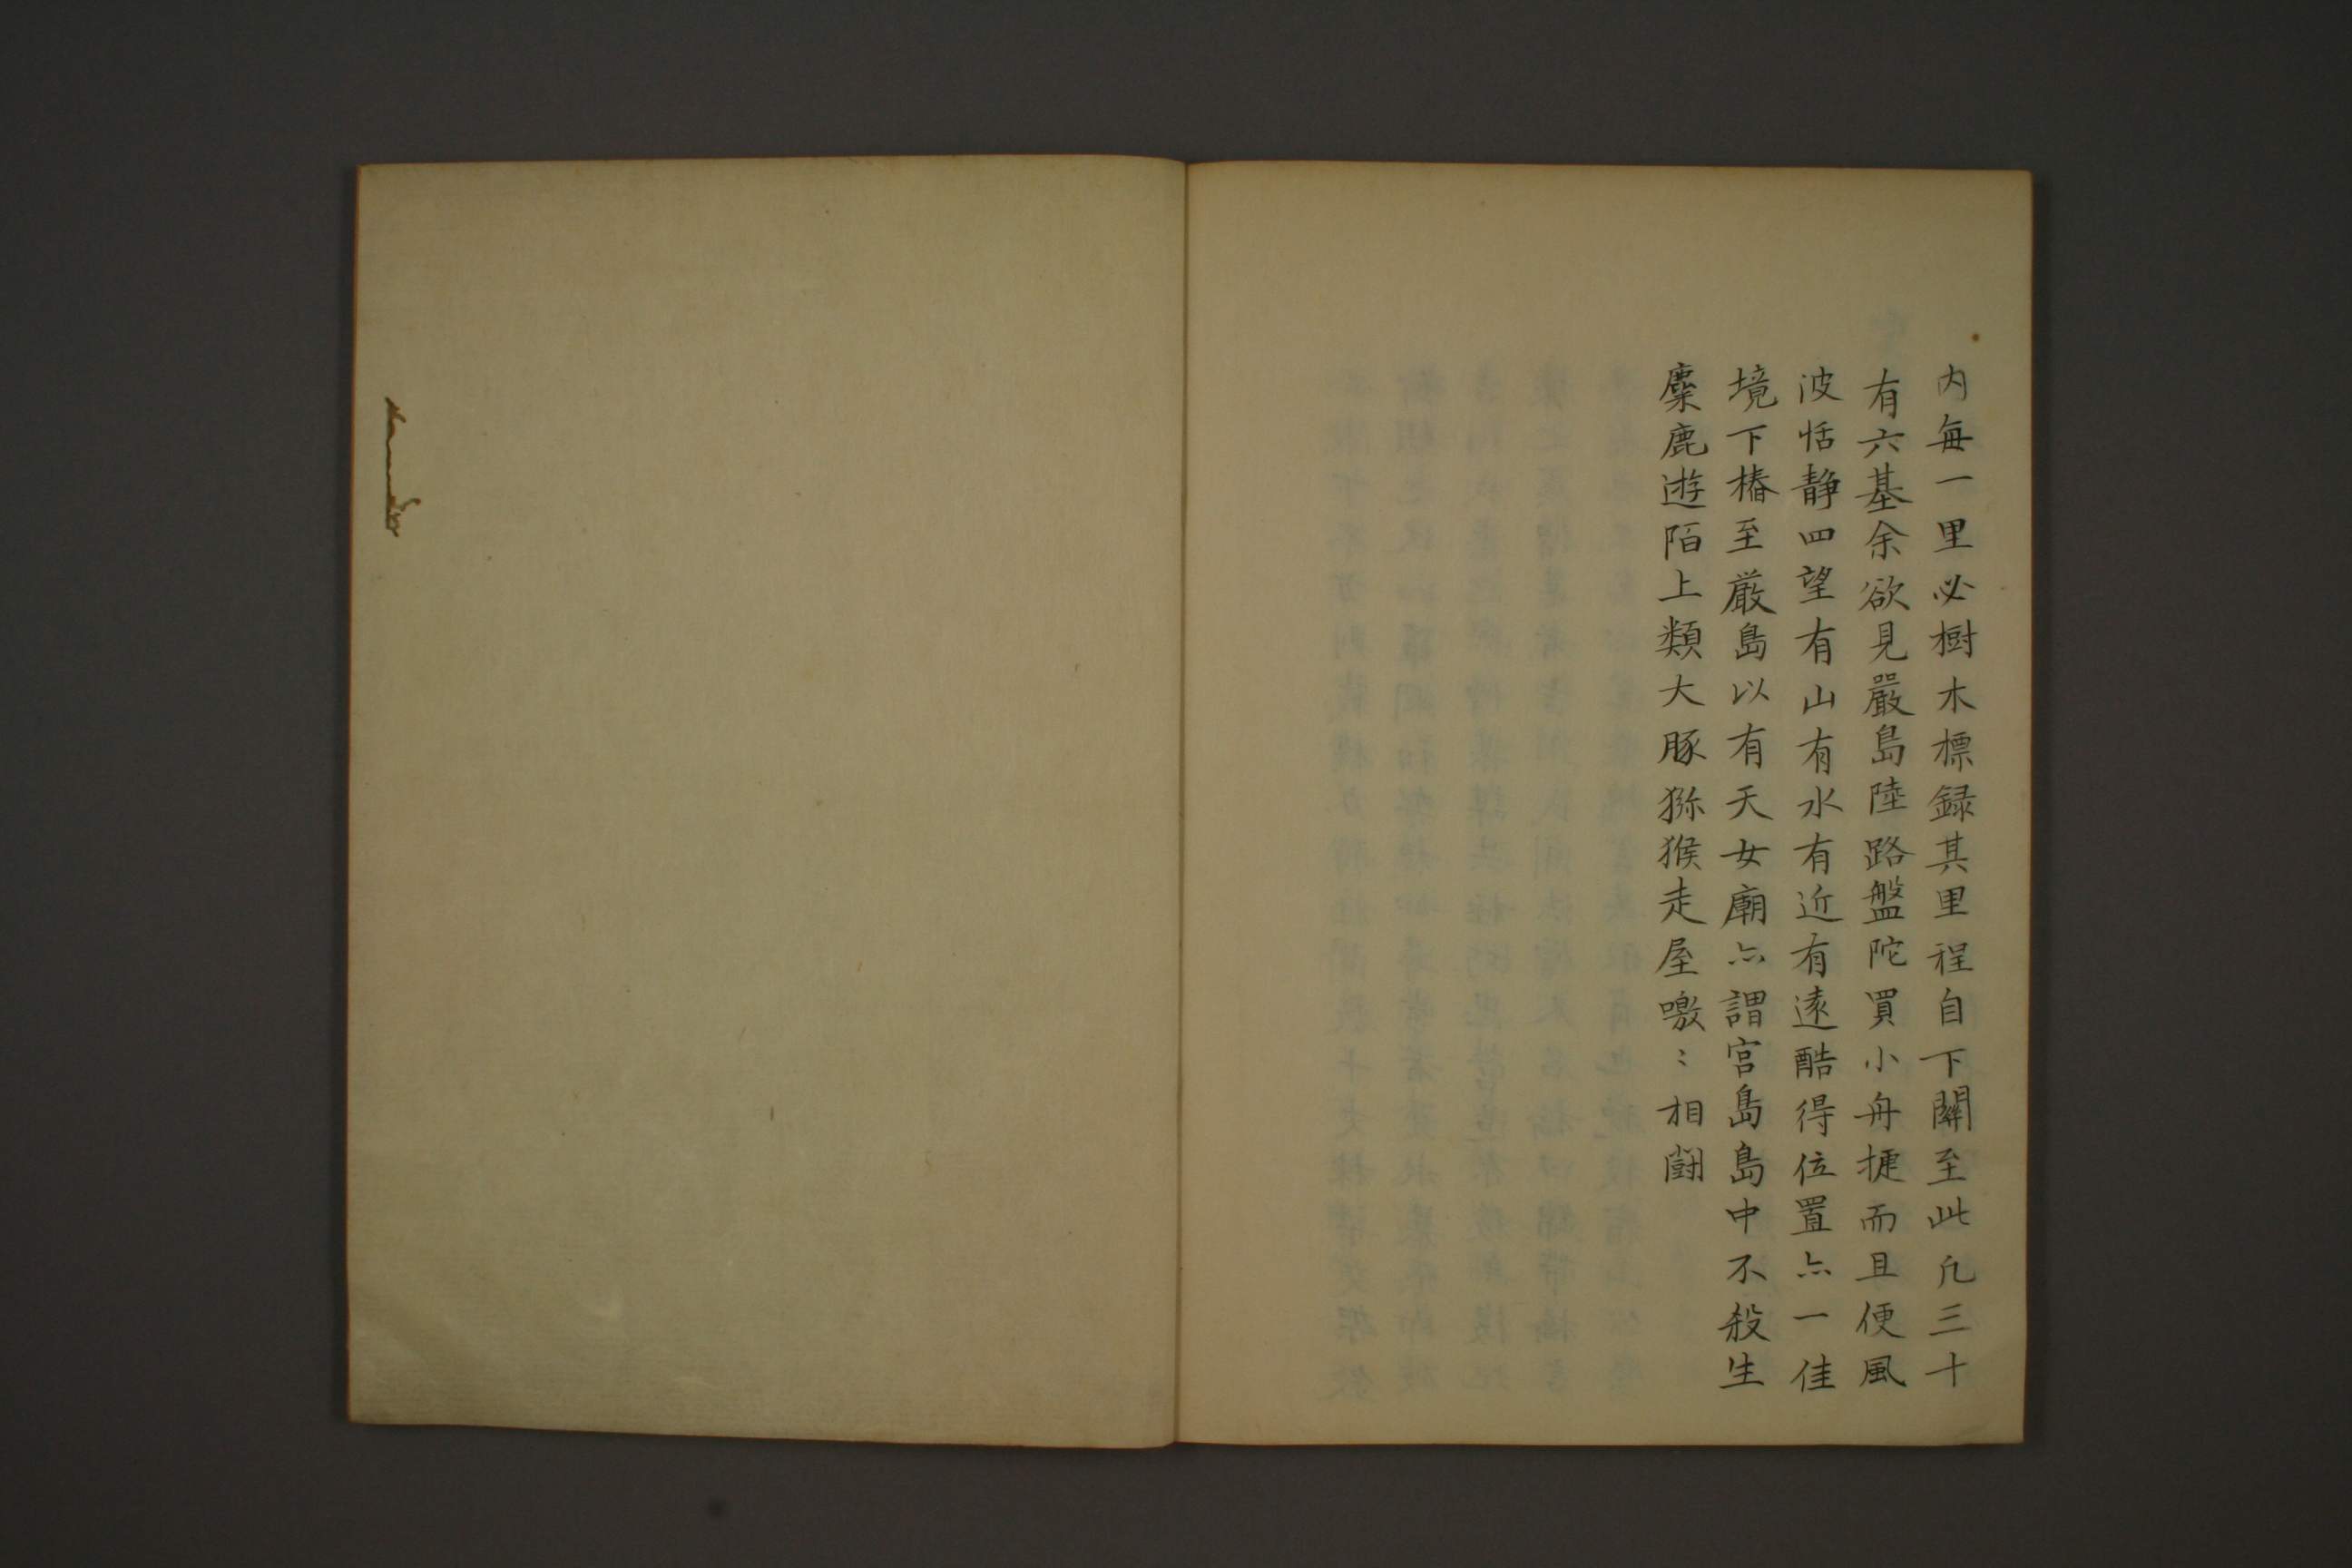 内每一里必樹木標録其里程自下關至此凢三十
有六基余欲見嚴島陸路盤陀買小舟捷而且便風
波恬静四望有山有水有近有遠酷得位置亦一佳
境下椿至厳島以有天女廟亦謂宮島島中不殺生
麋鹿遊陌上類犬豚猕猴走屋噭〻相闘